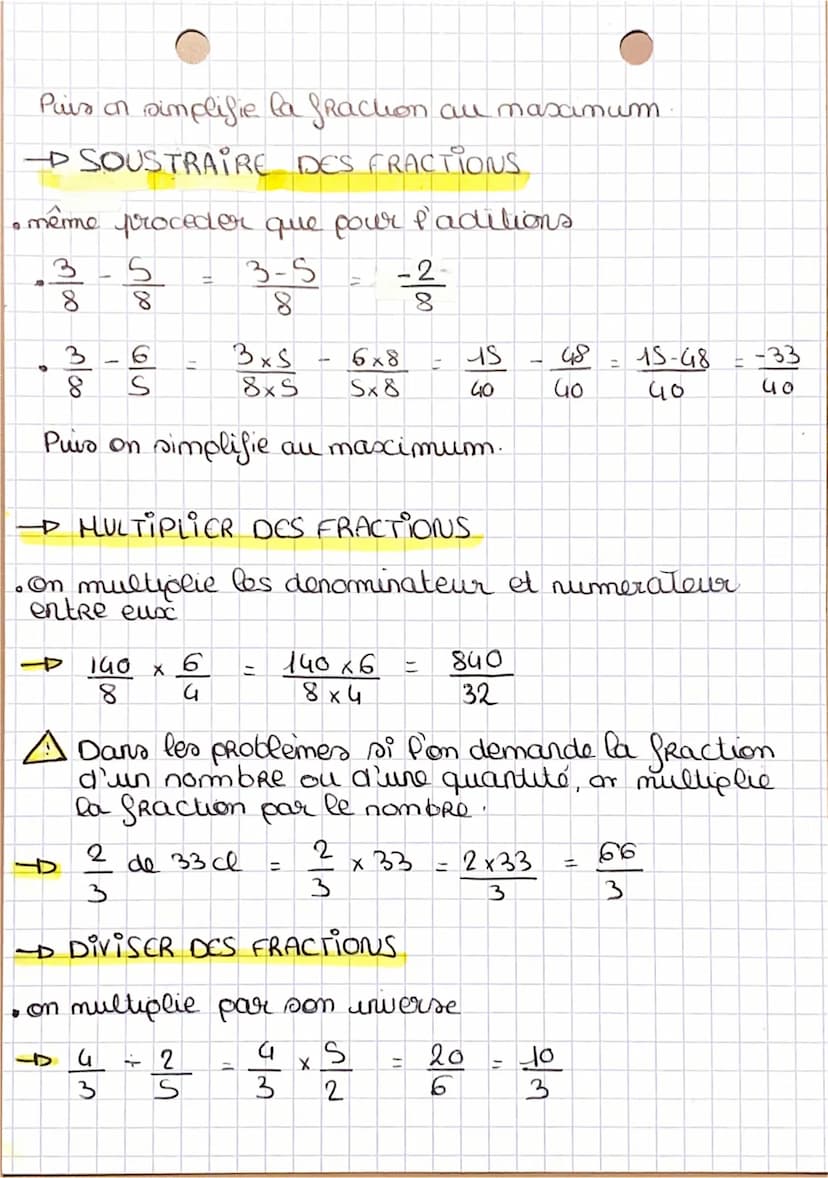 Puis on simplifie la fraction au maximum.
→ SOUSTRAIRE DES FRACTIONS
• même proceder que pour l'aditions
• 3/8 - 5/8 = 3-5/8 = -2/8
• 3/8 - 6/5 = 3x5/8x5 - 6x8/5x8 = 15/40 - 48/40 = 15-48/40 = -33/40
Puis on simplifie au maximum.
→ MULTIPLIER DES FRACTIONS
• on multiplie les denominateur et numerateur
entre eux
→ 140/8 x 6/4 = 140 x 6/8 x 4 = 840/32
⚠ Dans les problèmes si l'on demande la fraction
d'un nombre ou d'une quantité, on multiplie
la fraction par le nombre.
→ 2/3 de 33 cl = 2/3 x 33 = 2 x 33/3 = 66/3
→ DIVISER DES FRACTIONS
• on multiplie par son inverse
→ 4/3 ÷ 2/5 = 4/3 x 5/2 = 20/6 = 10/3